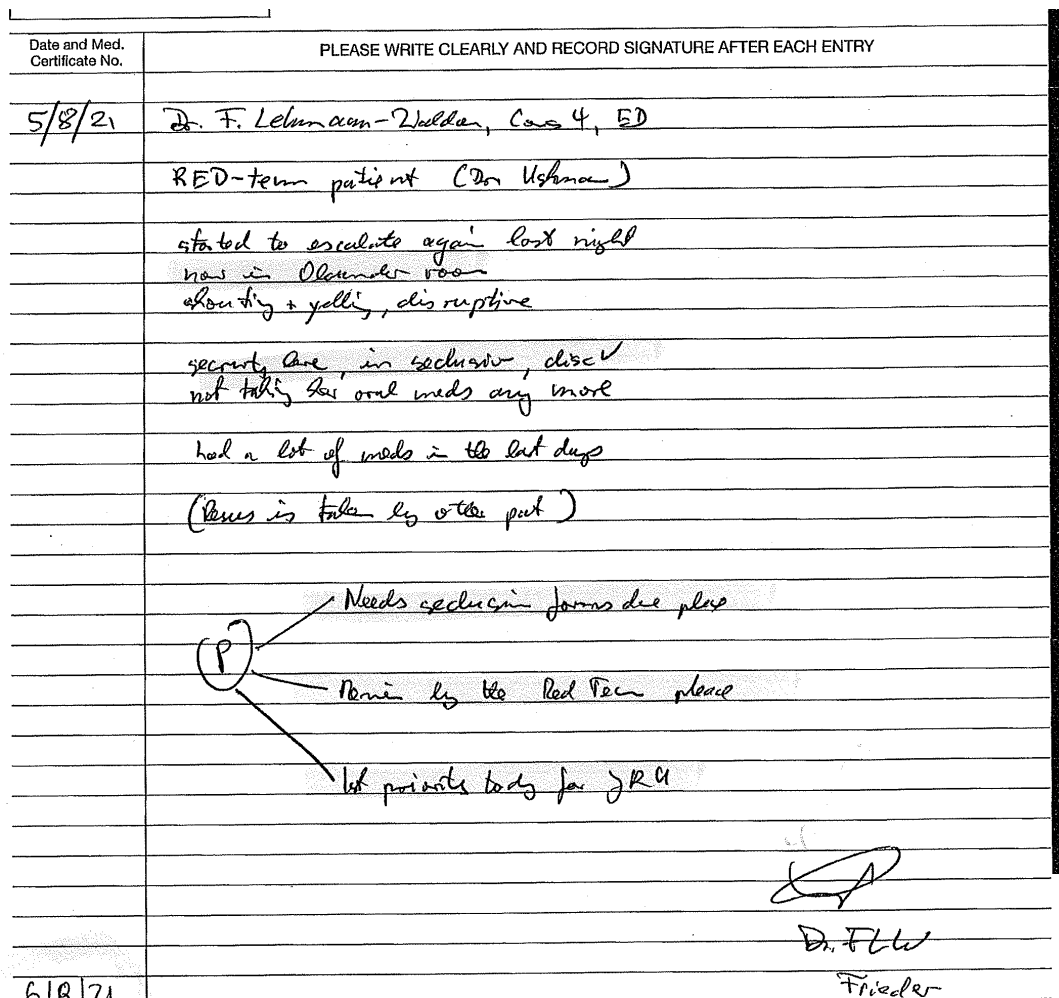 Date and Med.
Certificate No.
PLEASE WRITE CLEARLY AND RECORD SIGNATURE AFTER EACH ENTRY
5/8/21
Dr. F. Lehmann-Waldau, Cons 4, ED
RED-team patient (Dr
started to escalate again last night
now in room
shouting + yelling, disruptive
security, in seclusion, disc ✓
not taking her oral meds any more
had a lot of meds in the last days
( is taken by other part )
Needs seclusion forms due please
P
Review by the Red Team please
1st priority today for
Dr. FLW
Frieder
6/8/21